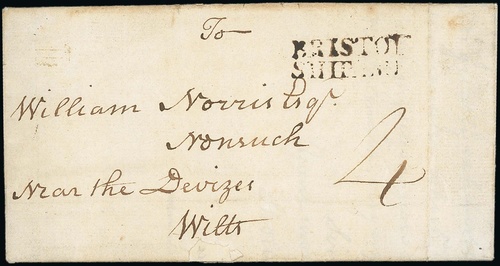 To
BRISTOL
SHIP LRE
William Norris Esqr.
Nonsuch
4
Near the Devizes
Wilts